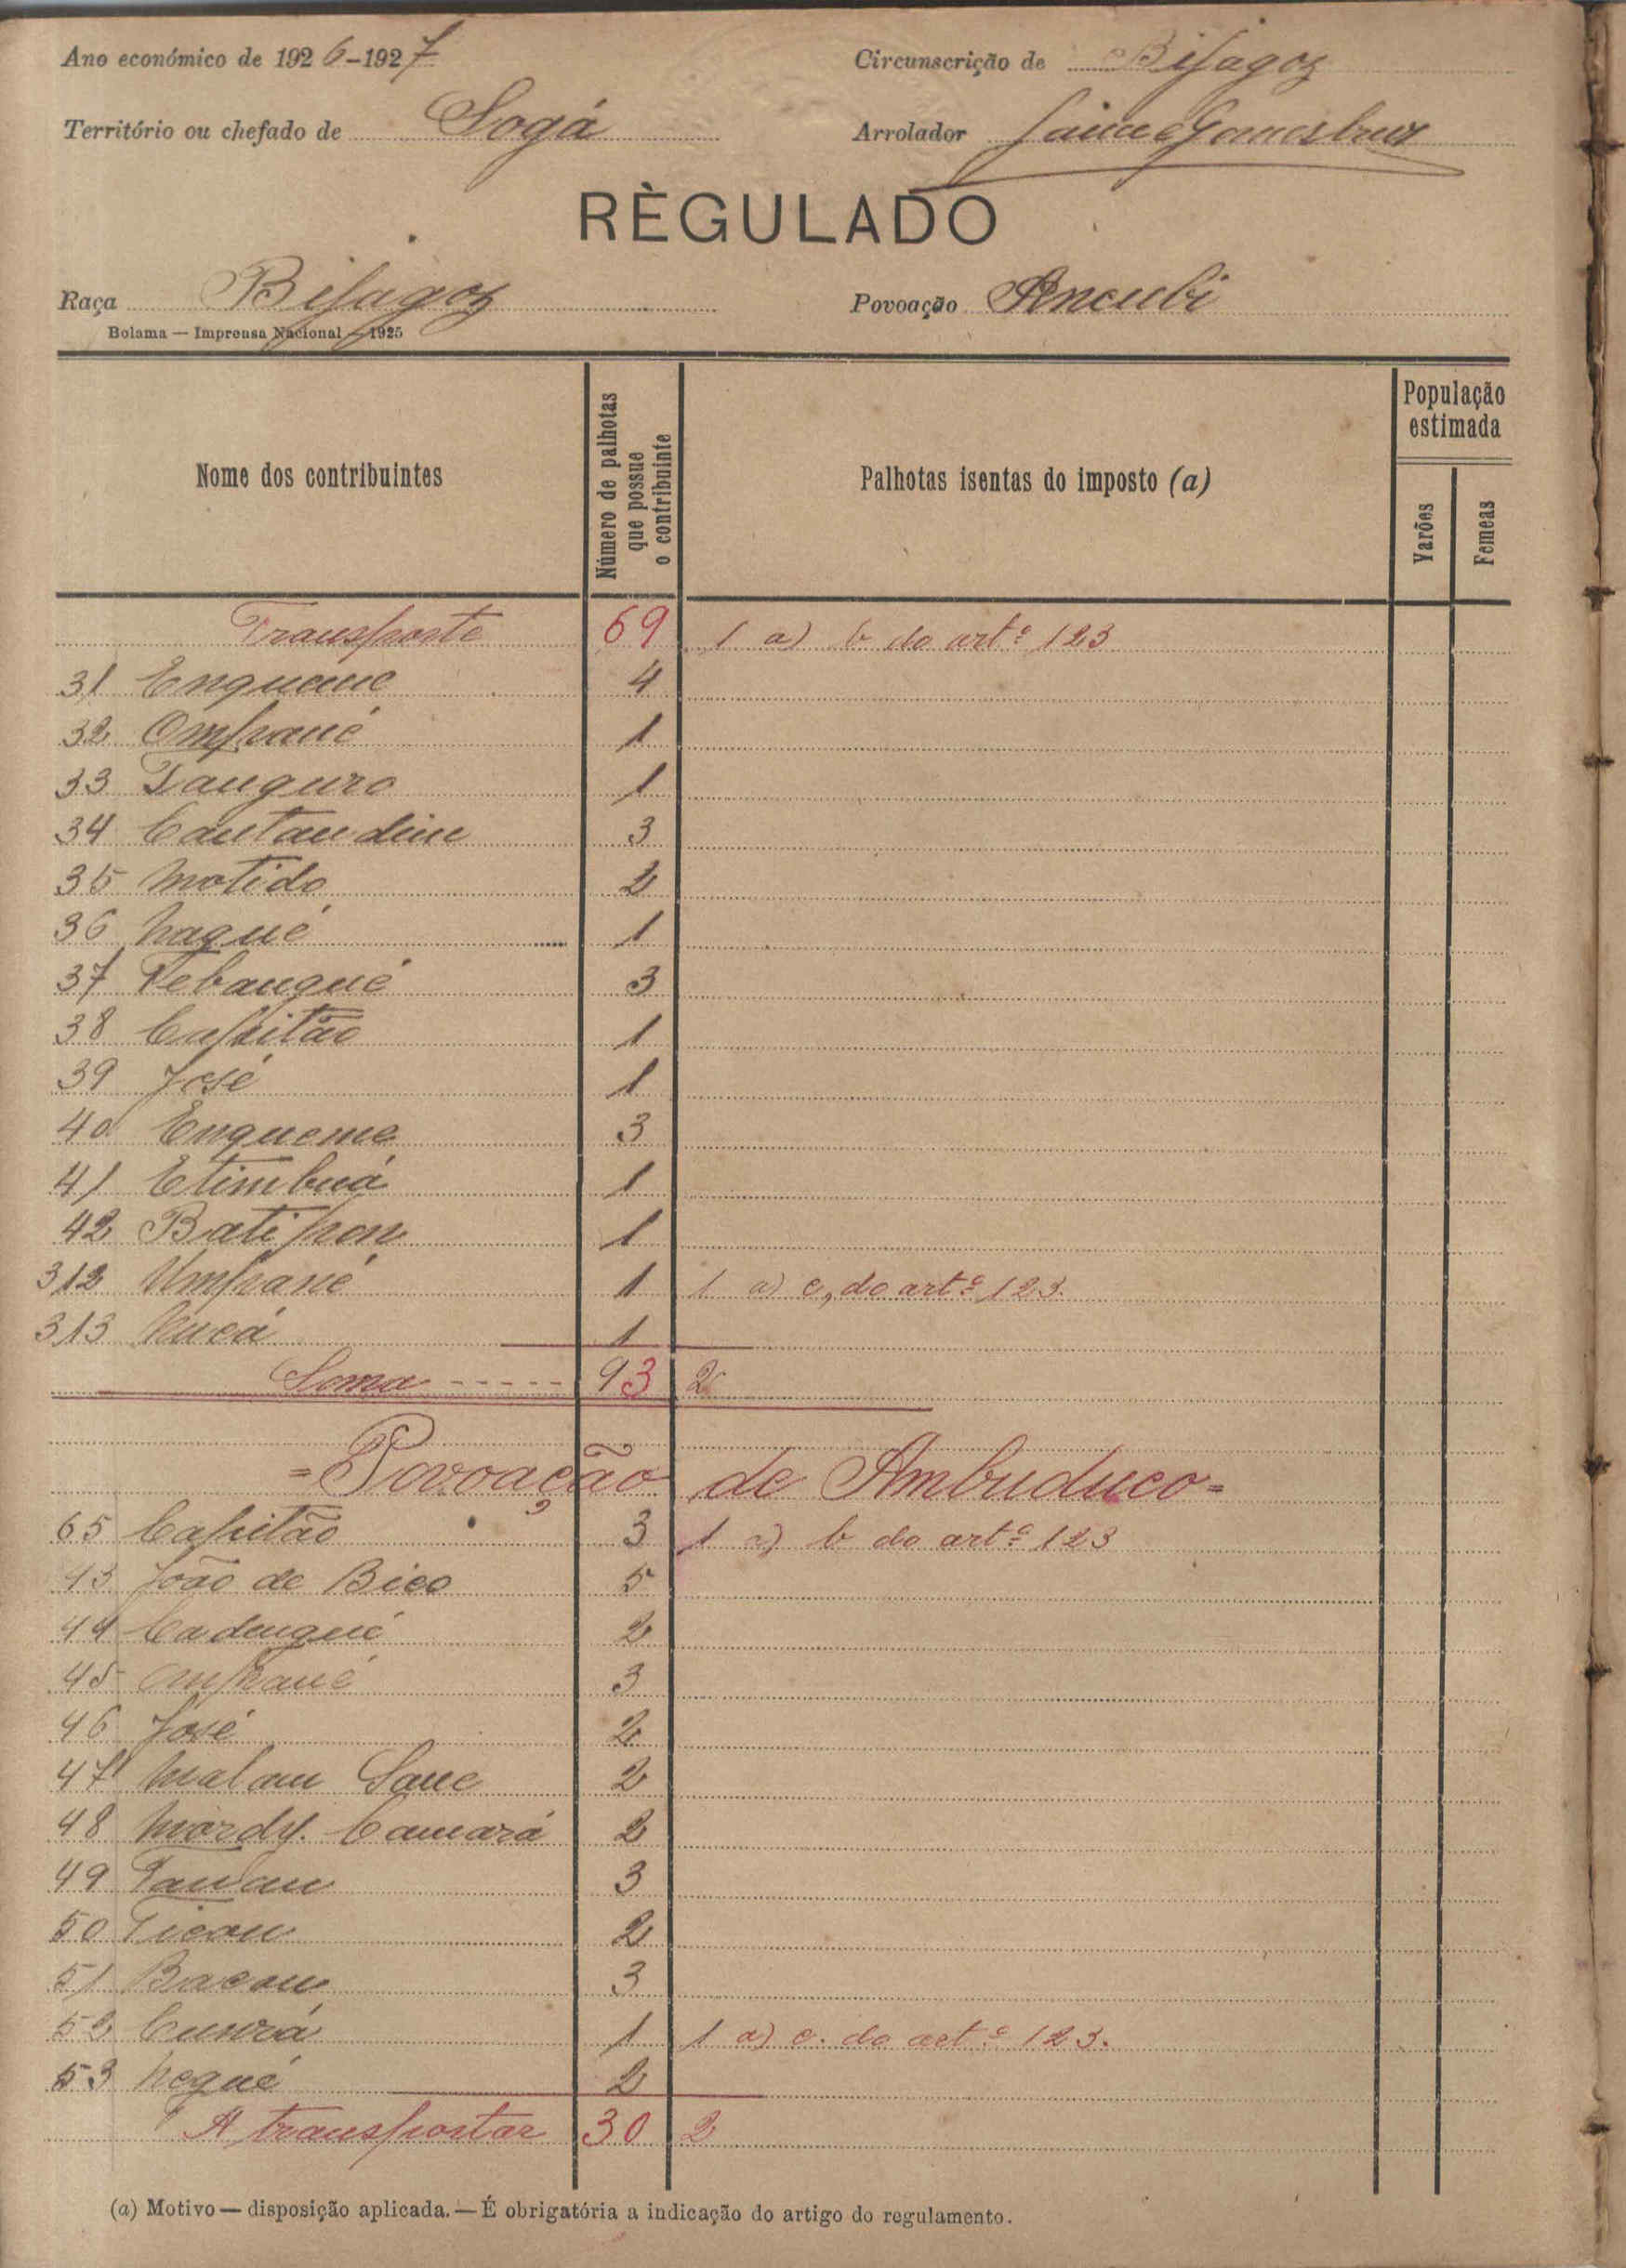 Ano económico de 1926-1927 Circunscrição de Bijagoz
Território ou chefado de Sogá Arrolador Jaime
RÈGULADO
Raça Bijagoz Povoação Ancubi
Bolama — Imprensa Nacional — 1925
Nome dos contribuintes Número de palhotas que possue o contribuinte Palhotas isentas do imposto (a) População estimada Varões Femeas
Transporte 69 1 a) b do artº 123
31 Enquame 4
32 Ompané 1
33 Tanguro 1
34 Cantandim 3
35 Motido 2
36 Naqué 1
37 Nebanqué 3
38 Capitão 1
39 José 1
40 Enqueme 3
41 Etimbuá 1
42 Batipon 1
312 Umpané 1 1 a) c, do artº 123.
313 1
Soma ----- 93 2
= Povoação de Ambuduco =
65 Capitão 3 1 a) b do artº 123
43 João de Bico 5
44 Cadenqué 2
45 Ompané 3
46 José 2
47 Malam Sane 2
48 Mordy. Camará 2
49 3
50 Ticou 2
51 Bacou 3
52 1 1 a) c. do artº 123.
53 Nequé 2
A transportar 30 2
(a) Motivo — disposição aplicada. — É obrigatória a indicação do artigo do regulamento.